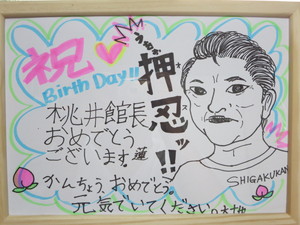 祝
Birth Day!!
押忍ッ!!
オス
桃井館長
おめでとう
ございます。蓮
SHIGAKUKAN
かんちょう、おめでとう。
元気でいてください。